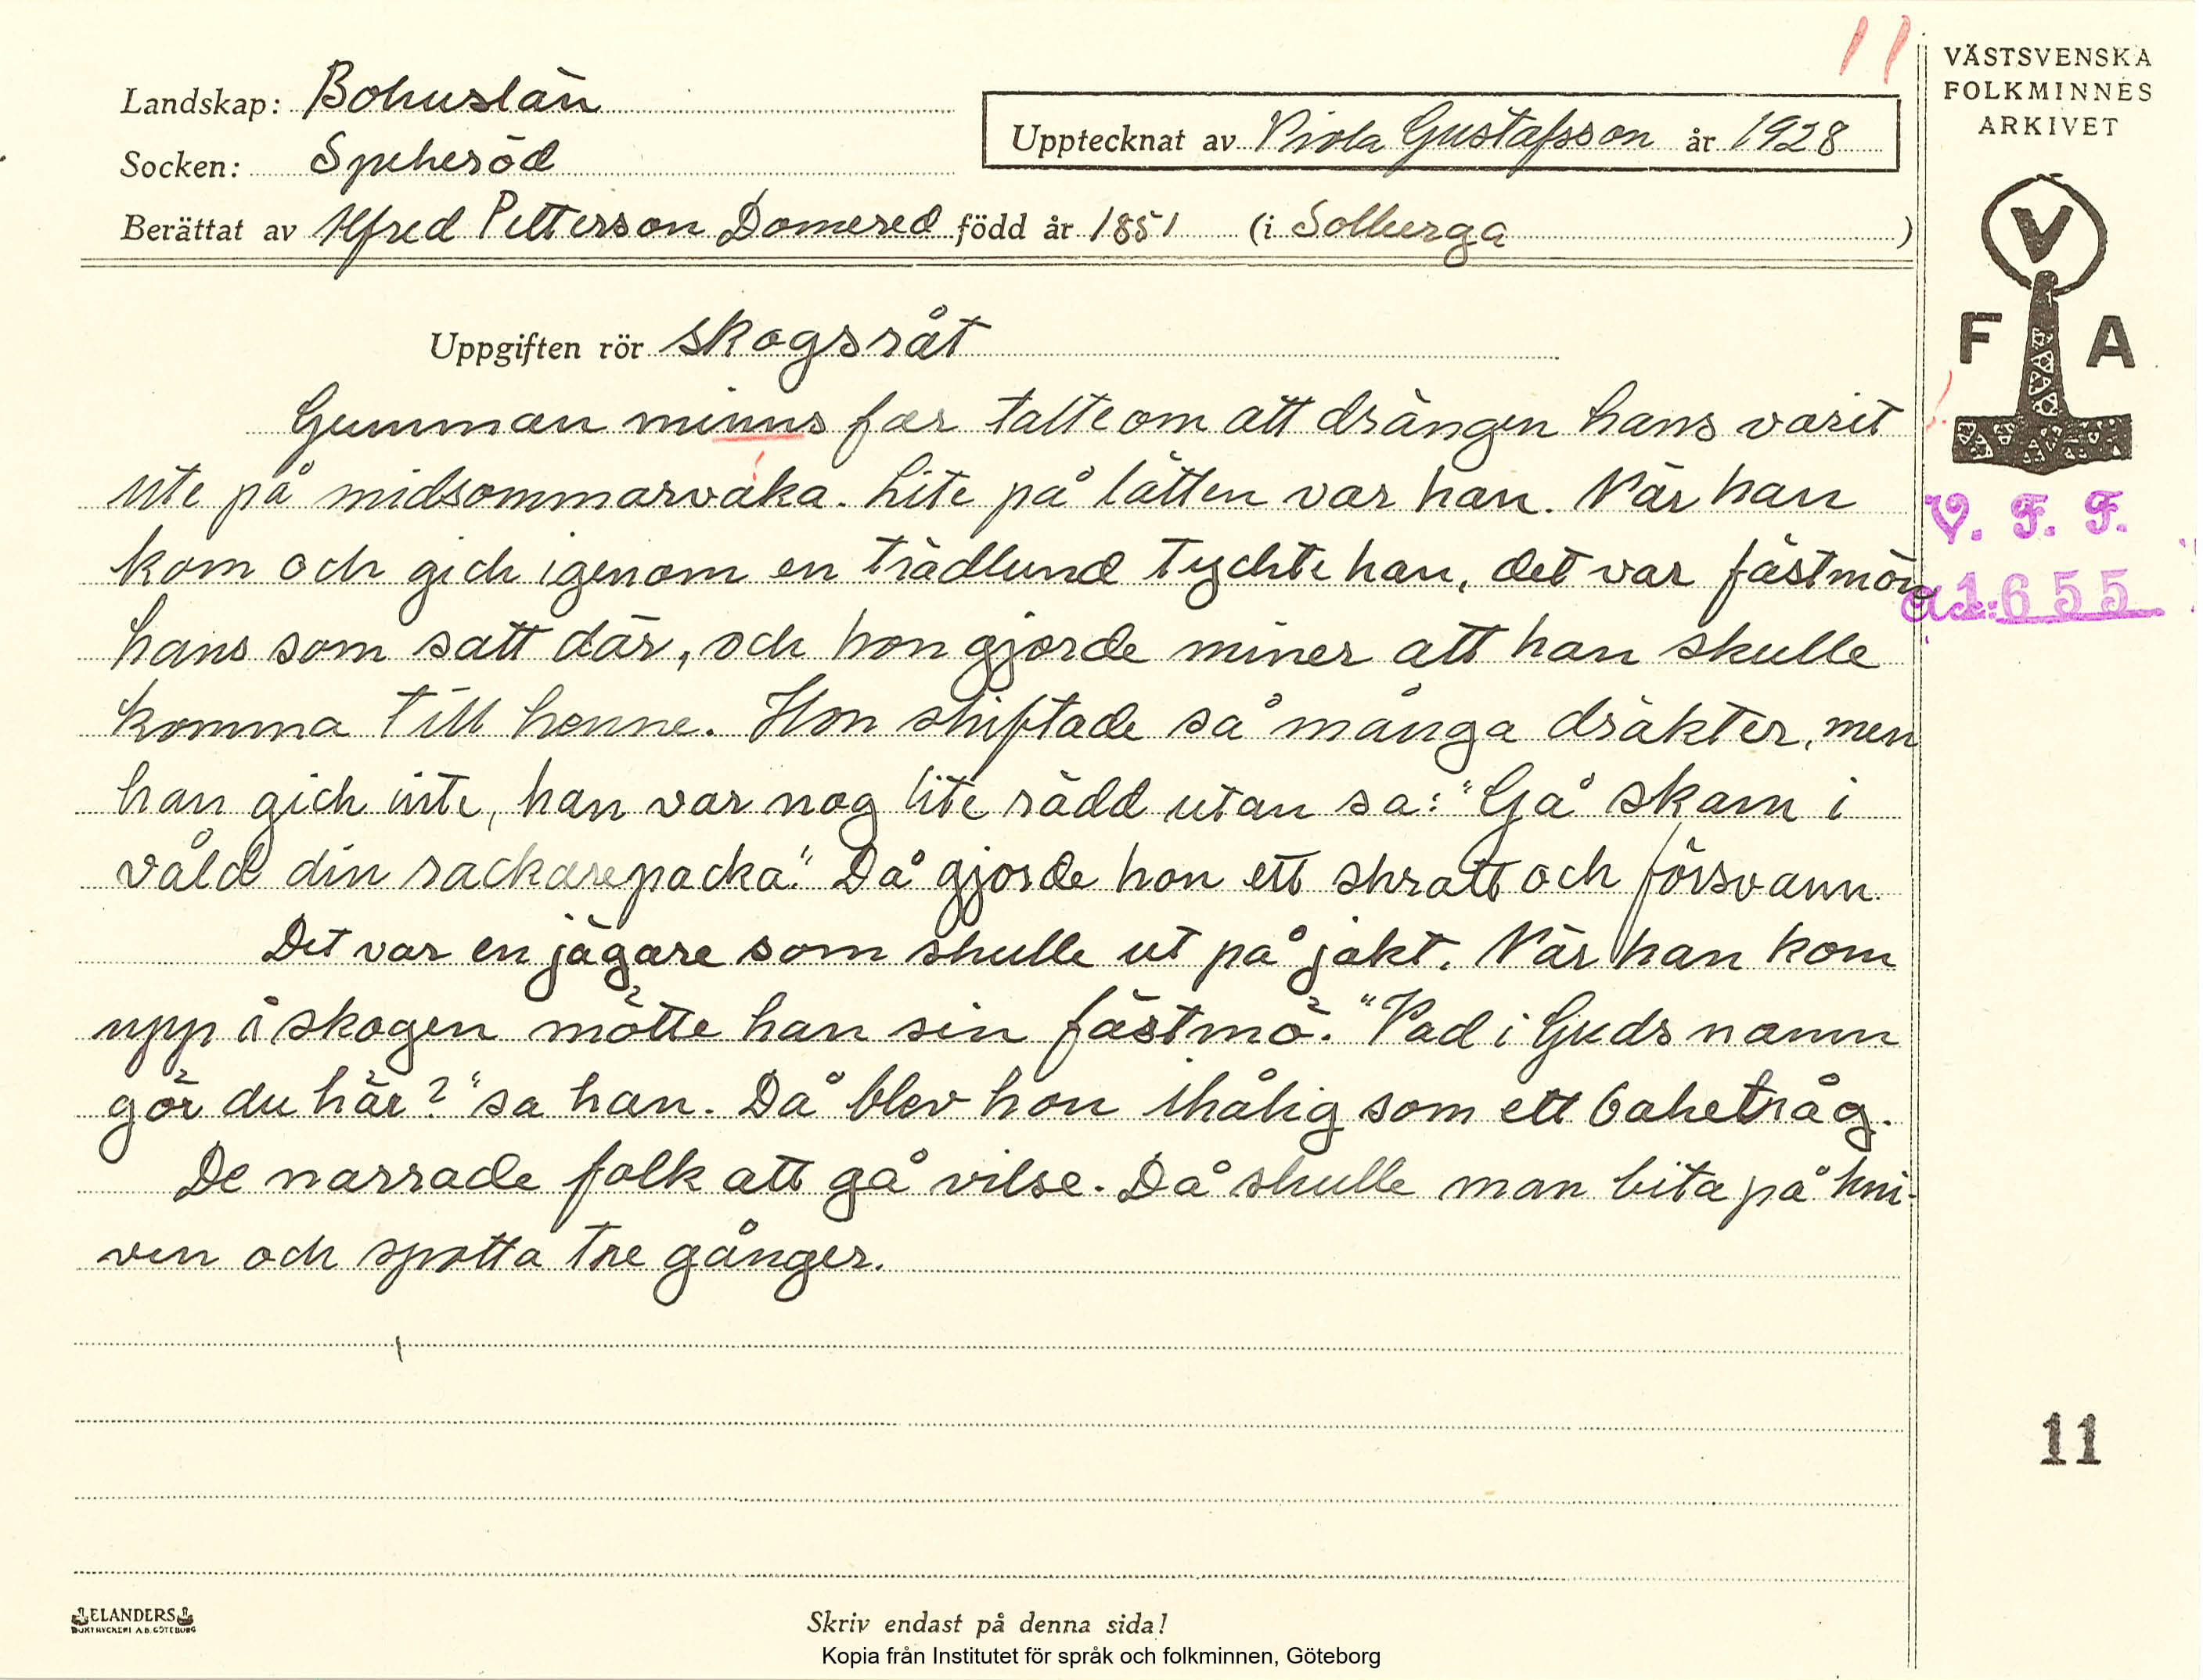 11
VÄSTSVENSKA
FOLKMINNES
ARKIVET
Landskap: Bohuslän
Upptecknat av Viola Gustafsson år 1928
Socken: Spekeröd
Berättat av Alfred Pettersson Domered född år 1851 (i Solberga)
V
F A
Uppgiften rör skogsråt
Gumman minns far talte om att drängen hans varit
ute på midsommarvaka. Lite på lätten var han. När han
kom och gick igenom en trädlund tyckte han, det var fästmön
hans som satt där, och hon gjorde miner att han skulle
komma till henne. Hon skiftade så många dräkter, men
han gick inte, han var nog lite rädd utan sa: "Gå skam i
våld din rackarepacka." Då gjorde hon ett skratt och försvann.
Det var en jägare som skulle ut på jakt. När han kom
upp i skogen mötte han sin fästmö. "Vad i Guds namn
gör du här?" sa han. Då blev hon ihålig som ett baketråg.
De narrade folk att gå vilse. Då skulle man bita på kni-
ven och spotta tre gånger.
V. F. F.
1655
11
ELANDERS
BOKTRYCKERI A.B. GÖTEBORG
Skriv endast på denna sida!
Kopia från Institutet för språk och folkminnen, Göteborg